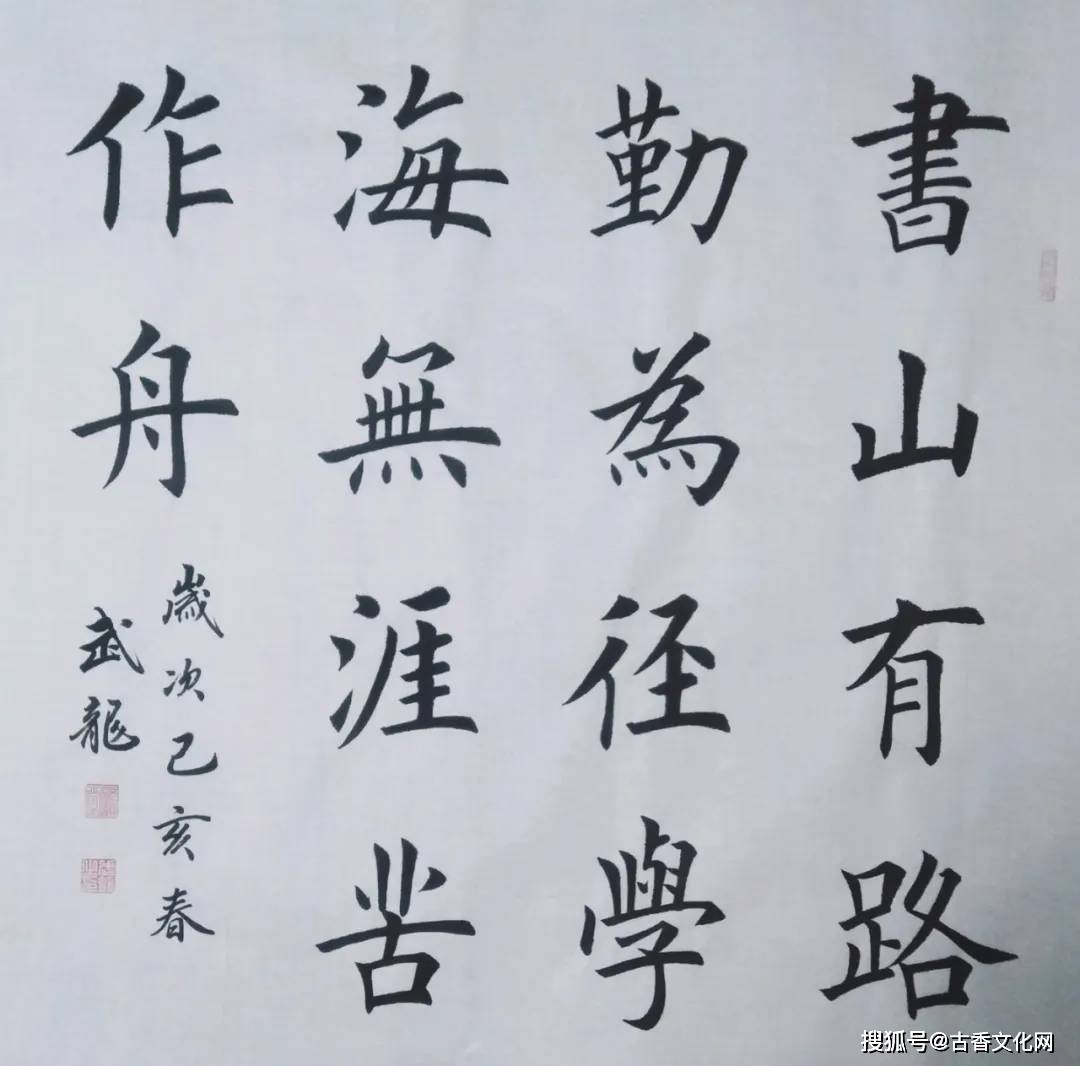 書山有路
勤為徑學
海無涯苦
作舟
歲次己亥春
武龍
搜狐号@古香文化网